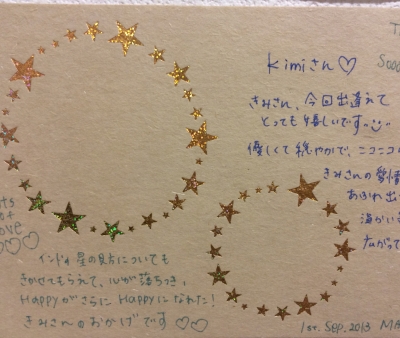 Kimiさん♡
きみさん、今回出逢えて
とっても嬉しいです
優しくて穏やかで、ニコニコ
きみさんの愛情
あふれ出
海かい
love
インド占星の見方についても
きかせてもらえて、心が落ちつき、
HappyがさらにHappyになれた!
きみさんのおかげです♡♡
1st. Sep. 2013 MA